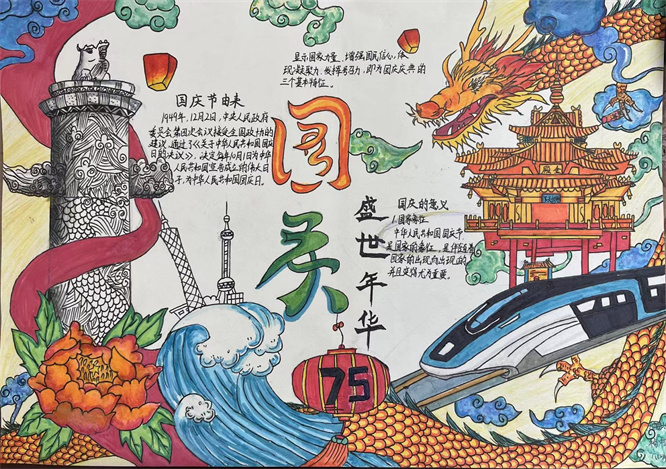 显示国家力量、增强国民信心,体
现凝聚力,发挥号召力,即为国庆庆典的
三个基本特征。
国庆节由来
1949年,12月2日,中央人民政府
委员会第四次会议接受全国政协的
建议,通过了《关于中华人民共和国国庆
日的决议》,决定每年10月1日为中华
人民共和国宣告成立的伟大日
子,为中华人民共和国国庆日。
国
庆
盛
世
年
华
国庆的意义
1.国家象征
中华人民共和国国庆节
是国家的象征,是伴随着
国家的出现而出现的
并且变得尤为重要。
75